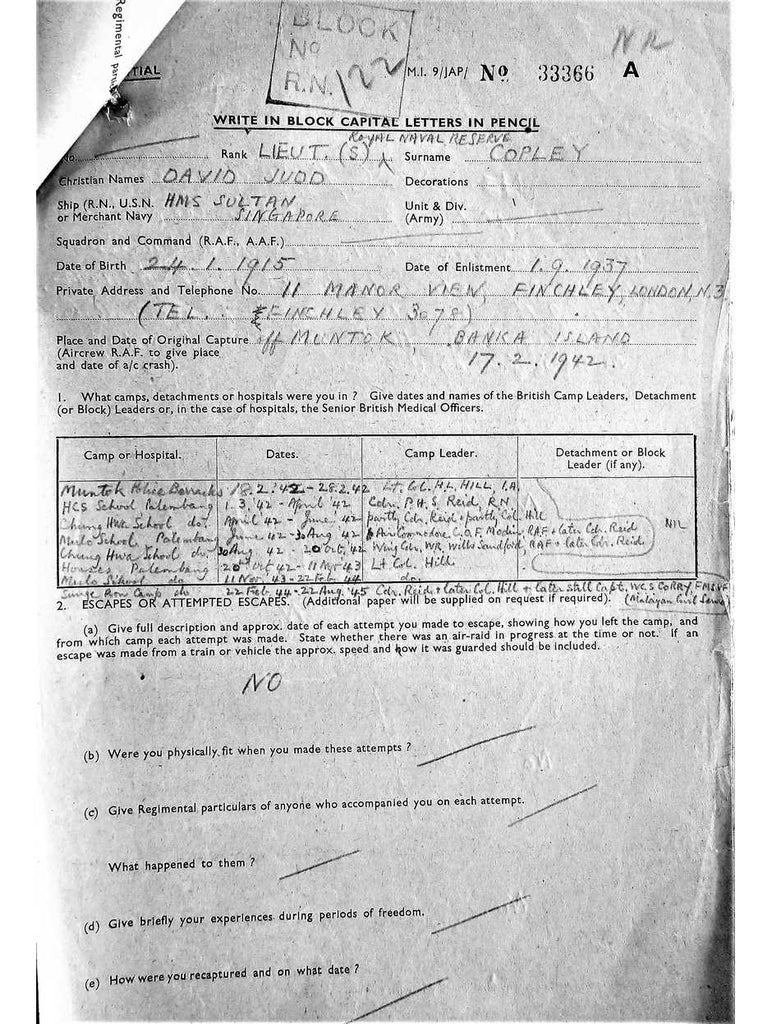 Regimental
TIAL
BLOCK
No
R.N. 122
M.I. 9/JAP/ No 33366 A
WRITE IN BLOCK CAPITAL LETTERS IN PENCIL
ROYAL NAVAL RESERVE
No. Rank LIEUT. (S) Surname COPLEY
Christian Names DAVID JUDD Decorations
Ship (R.N., U.S.N. HMS SULTAN Unit & Div.
or Merchant Navy SINGAPORE (Army)
Squadron and Command (R.A.F., A.A.F.)
Date of Birth 24.1.1915 Date of Enlistment 1.9.1937
Private Address and Telephone No. 11 MANOR VIEW, FINCHLEY, LONDON N.3
(TEL. FINCHLEY 3078)
Place and Date of Original Capture off MUNTOK, BANKA ISLAND
(Aircrew R.A.F. to give place 17.2.1942.
and date of a/c crash).
1. What camps, detachments or hospitals were you in ? Give dates and names of the British Camp Leaders, Detachment
(or Block) Leaders or, in the case of hospitals, the Senior British Medical Officers.
Camp or Hospital. Dates. Camp Leader. Detachment or Block
Leader (if any).
Muntok Police Barracks 18.2.42 - 28.2.42 Lt. Col. H.L. HILL, I.A.
HCS School Palembang 1.3.42 - April 42 Cdr. P.H.S. Reid, R.N.
Chung Hwa School do. April 42 - June 42 partly Cdr. Reid & partly Col. Hill
Mulo School Palembang June 42 - 30 Aug 42 Air Commodore C.O.F. Modin, RAF & later Cdr. Reid NIL
Chung Hwa School do. 30 Aug 42 - 20 Oct. 42 Wing Cdr. WR Wills Sandford, RAF & later Cdr. Reid.
Houses Palembang 20th Oct 42 - 11 Nov 43 Lt Col. Hill
Mulo School do 11 Nov. 43 - 22 Feb 44 do.
Camp do 22 Feb 44 - 22 Aug '45 Cdr. Reid & later Col. Hill & later still Capt. WCS CORRY, FMSVF
2. ESCAPES OR ATTEMPTED ESCAPES. (Additional paper will be supplied on request if required). (Malayan Civil Service)
(a) Give full description and approx. date of each attempt you made to escape, showing how you left the camp, and
from which camp each attempt was made. State whether there was an air-raid in progress at the time or not. If an
escape was made from a train or vehicle the approx. speed and how it was guarded should be included.
NO
(b) Were you physically fit when you made these attempts ?
(c) Give Regimental particulars of anyone who accompanied you on each attempt.
What happened to them ?
(d) Give briefly your experiences during periods of freedom.
(e) How were you recaptured and on what date ?